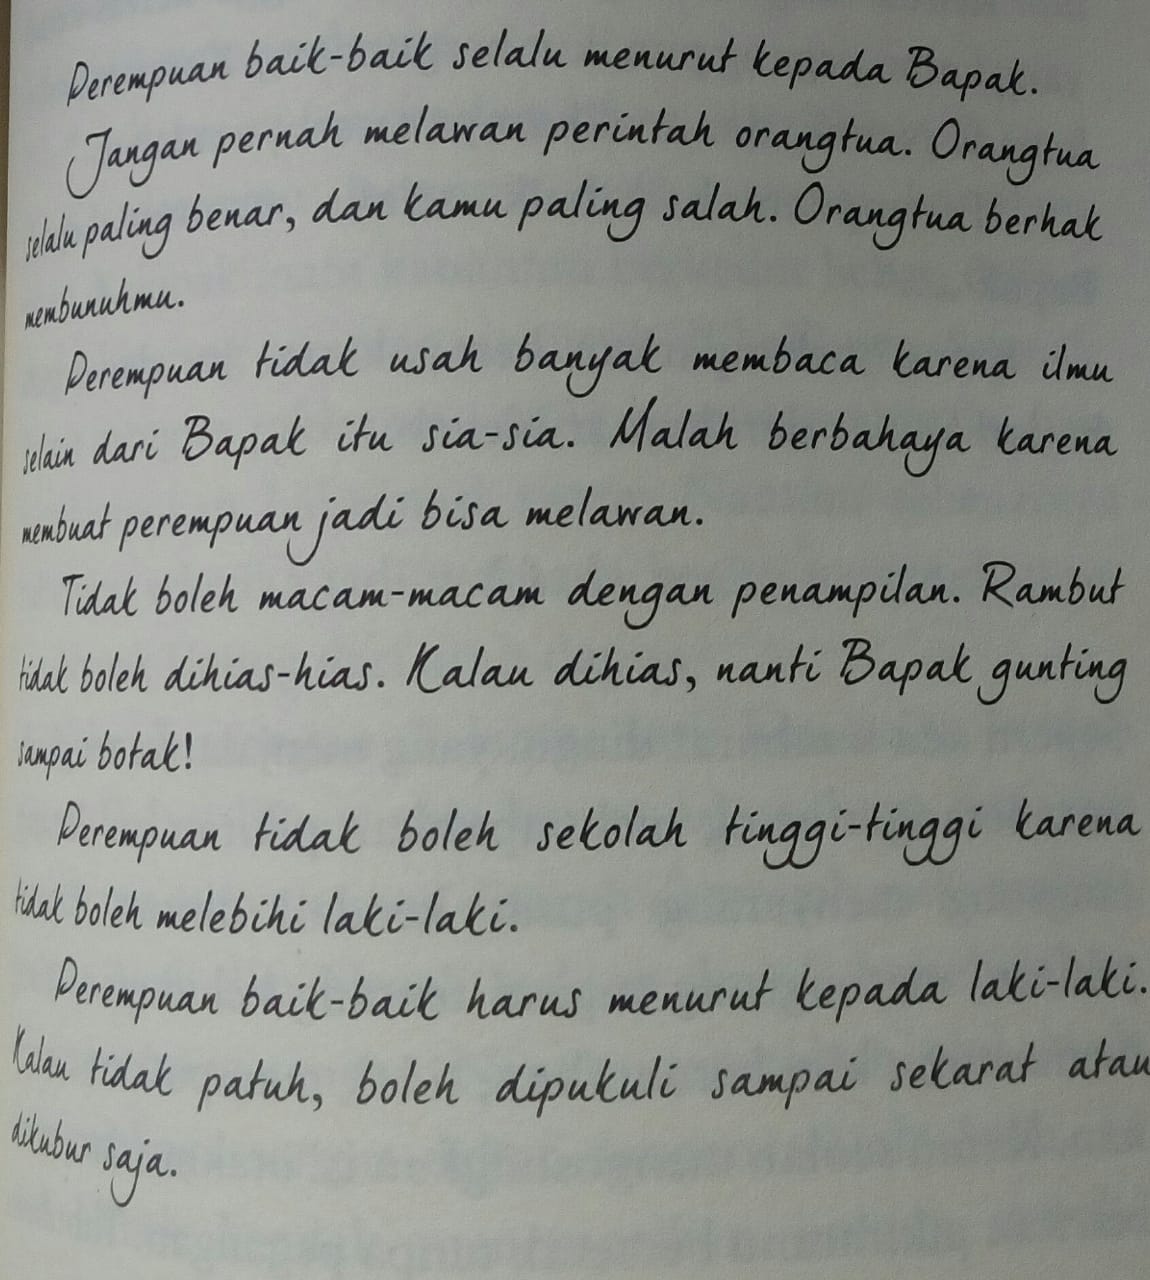 Perempuan baik-baik selalu menurut kepada Bapak.
Jangan pernah melawan perintah orangtua. Orangtua
selalu paling benar, dan kamu paling salah. Orangtua berhak
membunuhmu.
Perempuan tidak usah banyak membaca karena ilmu
selain dari Bapak itu sia-sia. Malah berbahaya karena
membuat perempuan jadi bisa melawan.
Tidak boleh macam-macam dengan penampilan. Rambut
tidak boleh dihias-hias. Kalau dihias, nanti Bapak gunting
sampai botak!
Perempuan tidak boleh sekolah tinggi-tinggi karena
tidak boleh melebihi laki-laki.
Perempuan baik-baik harus menurut kepada laki-laki.
Kalau tidak patuh, boleh dipukuli sampai sekarat atau
dikubur saja.